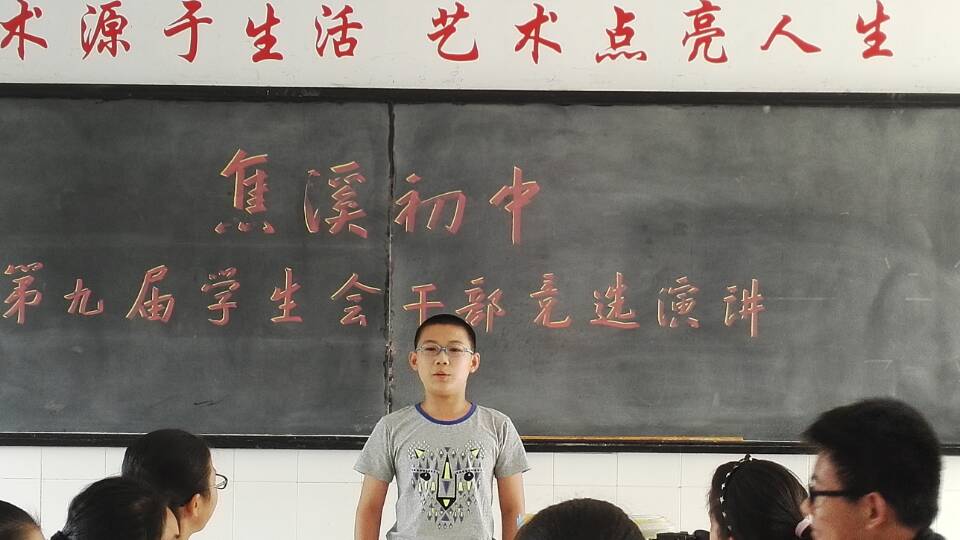 术源于生活 艺术点亮人生
焦溪初中
第九届学生会干部竞选演讲